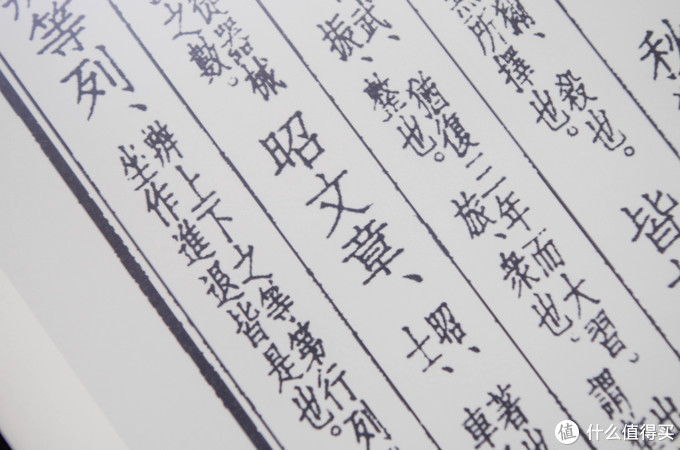 秋
皆
獮、殺也。
所擇也。
武、猶復三年而大習、謂
振、整也。旅、衆也、
從器械
之數。
昭文章、
昭、著
士、車
等列、
辨上下之等第行列
坐作進退皆是也。
值 什么值得买